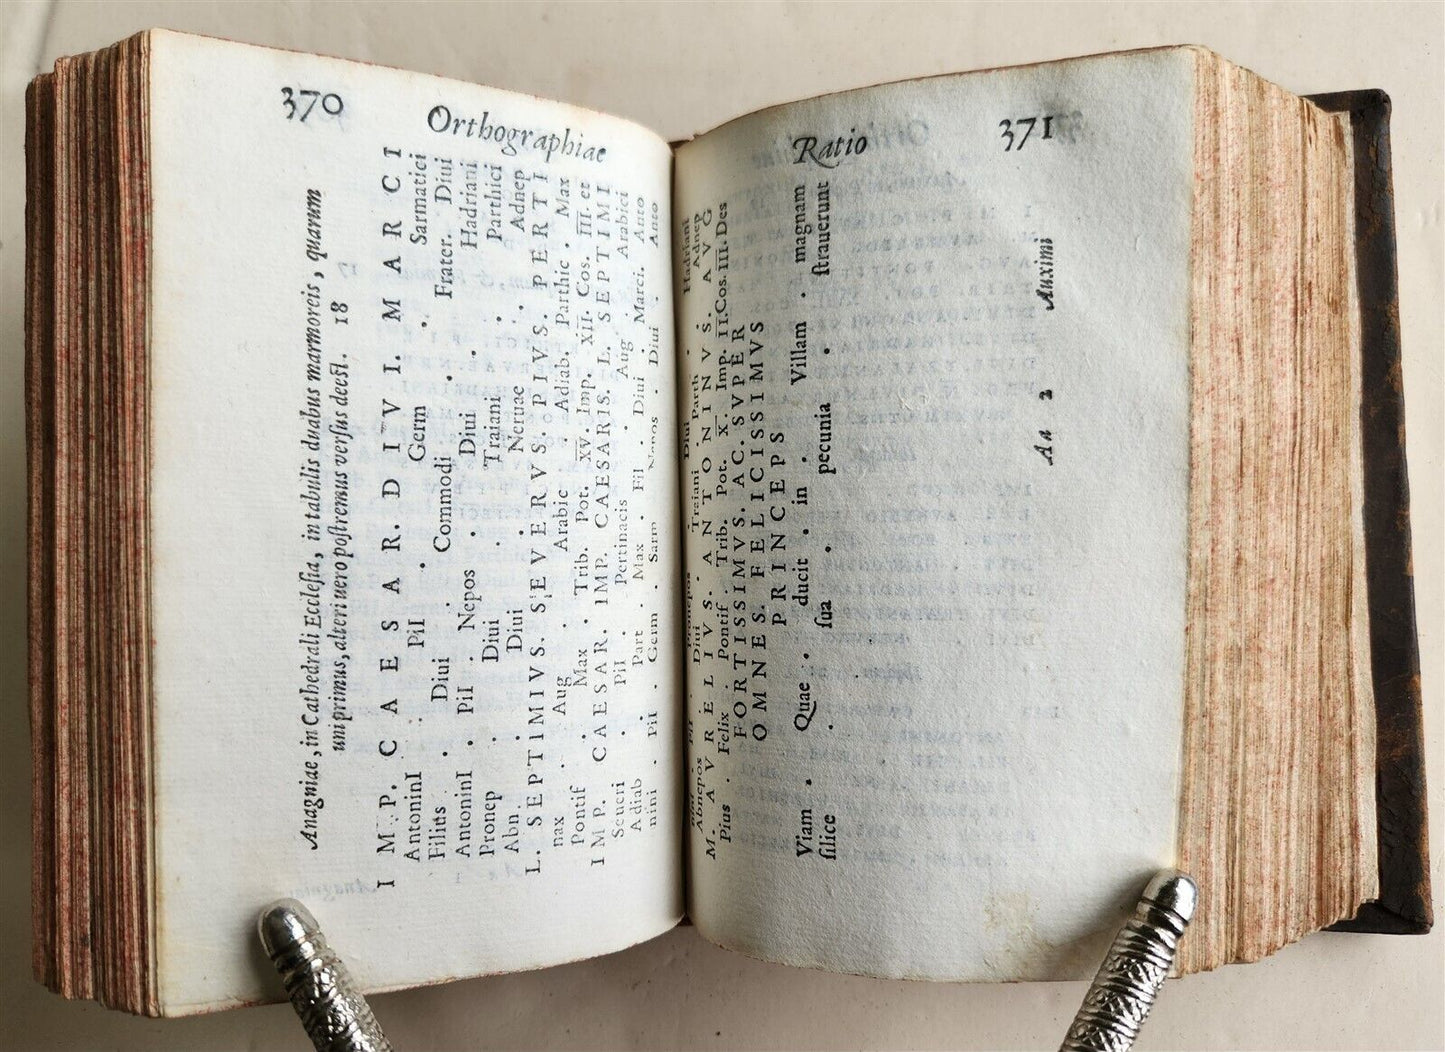 370
Orthographiae
Anagniae, in Cathedrali Ecclesia, in tabulis duabus marmoreis, quarum
uni primus, alteri uero postremus versus deest. 18
IMP. CAESAR. DIVI. MARCI
AntoninI . PiI . Germ . Sarmatici
Filius . Diui Commodi Frater. Diui
AntoninI . PiI . Nepos . Diui . Hadriani
Pronep . Diui . Traiani . Parthici
Abn . Diui . Neruae . Adnep
L. SEPTIMIVS. SEVERVS. PIVS. PERTI
nax . Aug . Arabic . Adiab. Parthic . Max
Pontif . Max . Trib. Pot. XV. Imp. XII. Cos. III. et
IMP. CAESAR. IMP. CAESARIS. L. SEPTIMI
Seueri . PiI . Pertinacis . Aug . Arabici
Adiab . Part . Max . Fil . Diui . Marci. Anto
nini . PiI . Germ . Sarm . Nepos . Diui . Anto
Ratio
371
nini PiI . Pronepos . Diui . Hadriani
Abnepos . Diui . Traiani . Parth . Adnep
M. AVRELIVS. ANTONINVS. AVG
Pius . Felix . Pontif . Trib. Pot. X. Imp. II. Cos. III. Des
FORTISSIMVS. AC. SVPER
OMNES. FELICISSIMVS
PRINCEPS
Viam . Quae . ducit . in . Villam . magnam
silice . sua . pecunia . strauerunt
Aa 2 Auximi